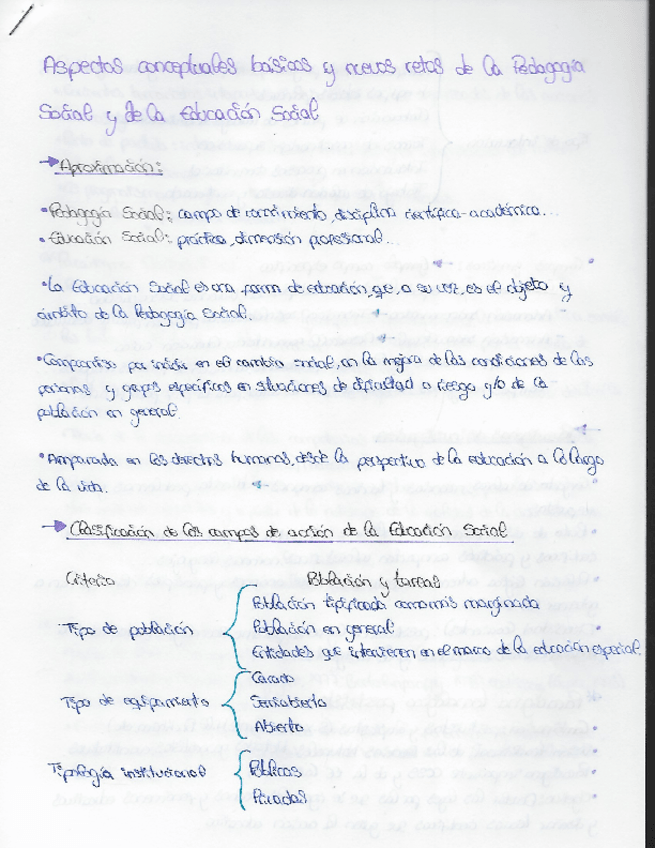 Aspectos conceptuales básicos y nuevos retos de la Pedagogía
Social y de la Educación Social
→ Aproximación:
• Pedagogía Social: campo de conocimiento, disciplina científica-académica...
• Educación Social: práctica, dimensión profesional...
• La Educación Social es una forma de educación, que, a su vez, es el objeto y
ámbito de la Pedagogía Social.
• Compromiso por incidir en el cambio social, en la mejora de las condiciones de las
personas y grupos específicos en situaciones de dificultad o riesgo y/o de la
población en general.
• Amparada en los derechos humanos, desde la perspectiva de la educación a lo largo
de la vida.
→ Clasificación de los campos de acción de la Educación Social
Criterio Población y tareas
Población tipificada como más marginada
Tipo de población Población en general
Entidades que intervienen en el marco de la educación especial.
Cerrado
Tipo de equipamiento Semiabierto
Abierto
Tipología institucional Públicas
Privadas